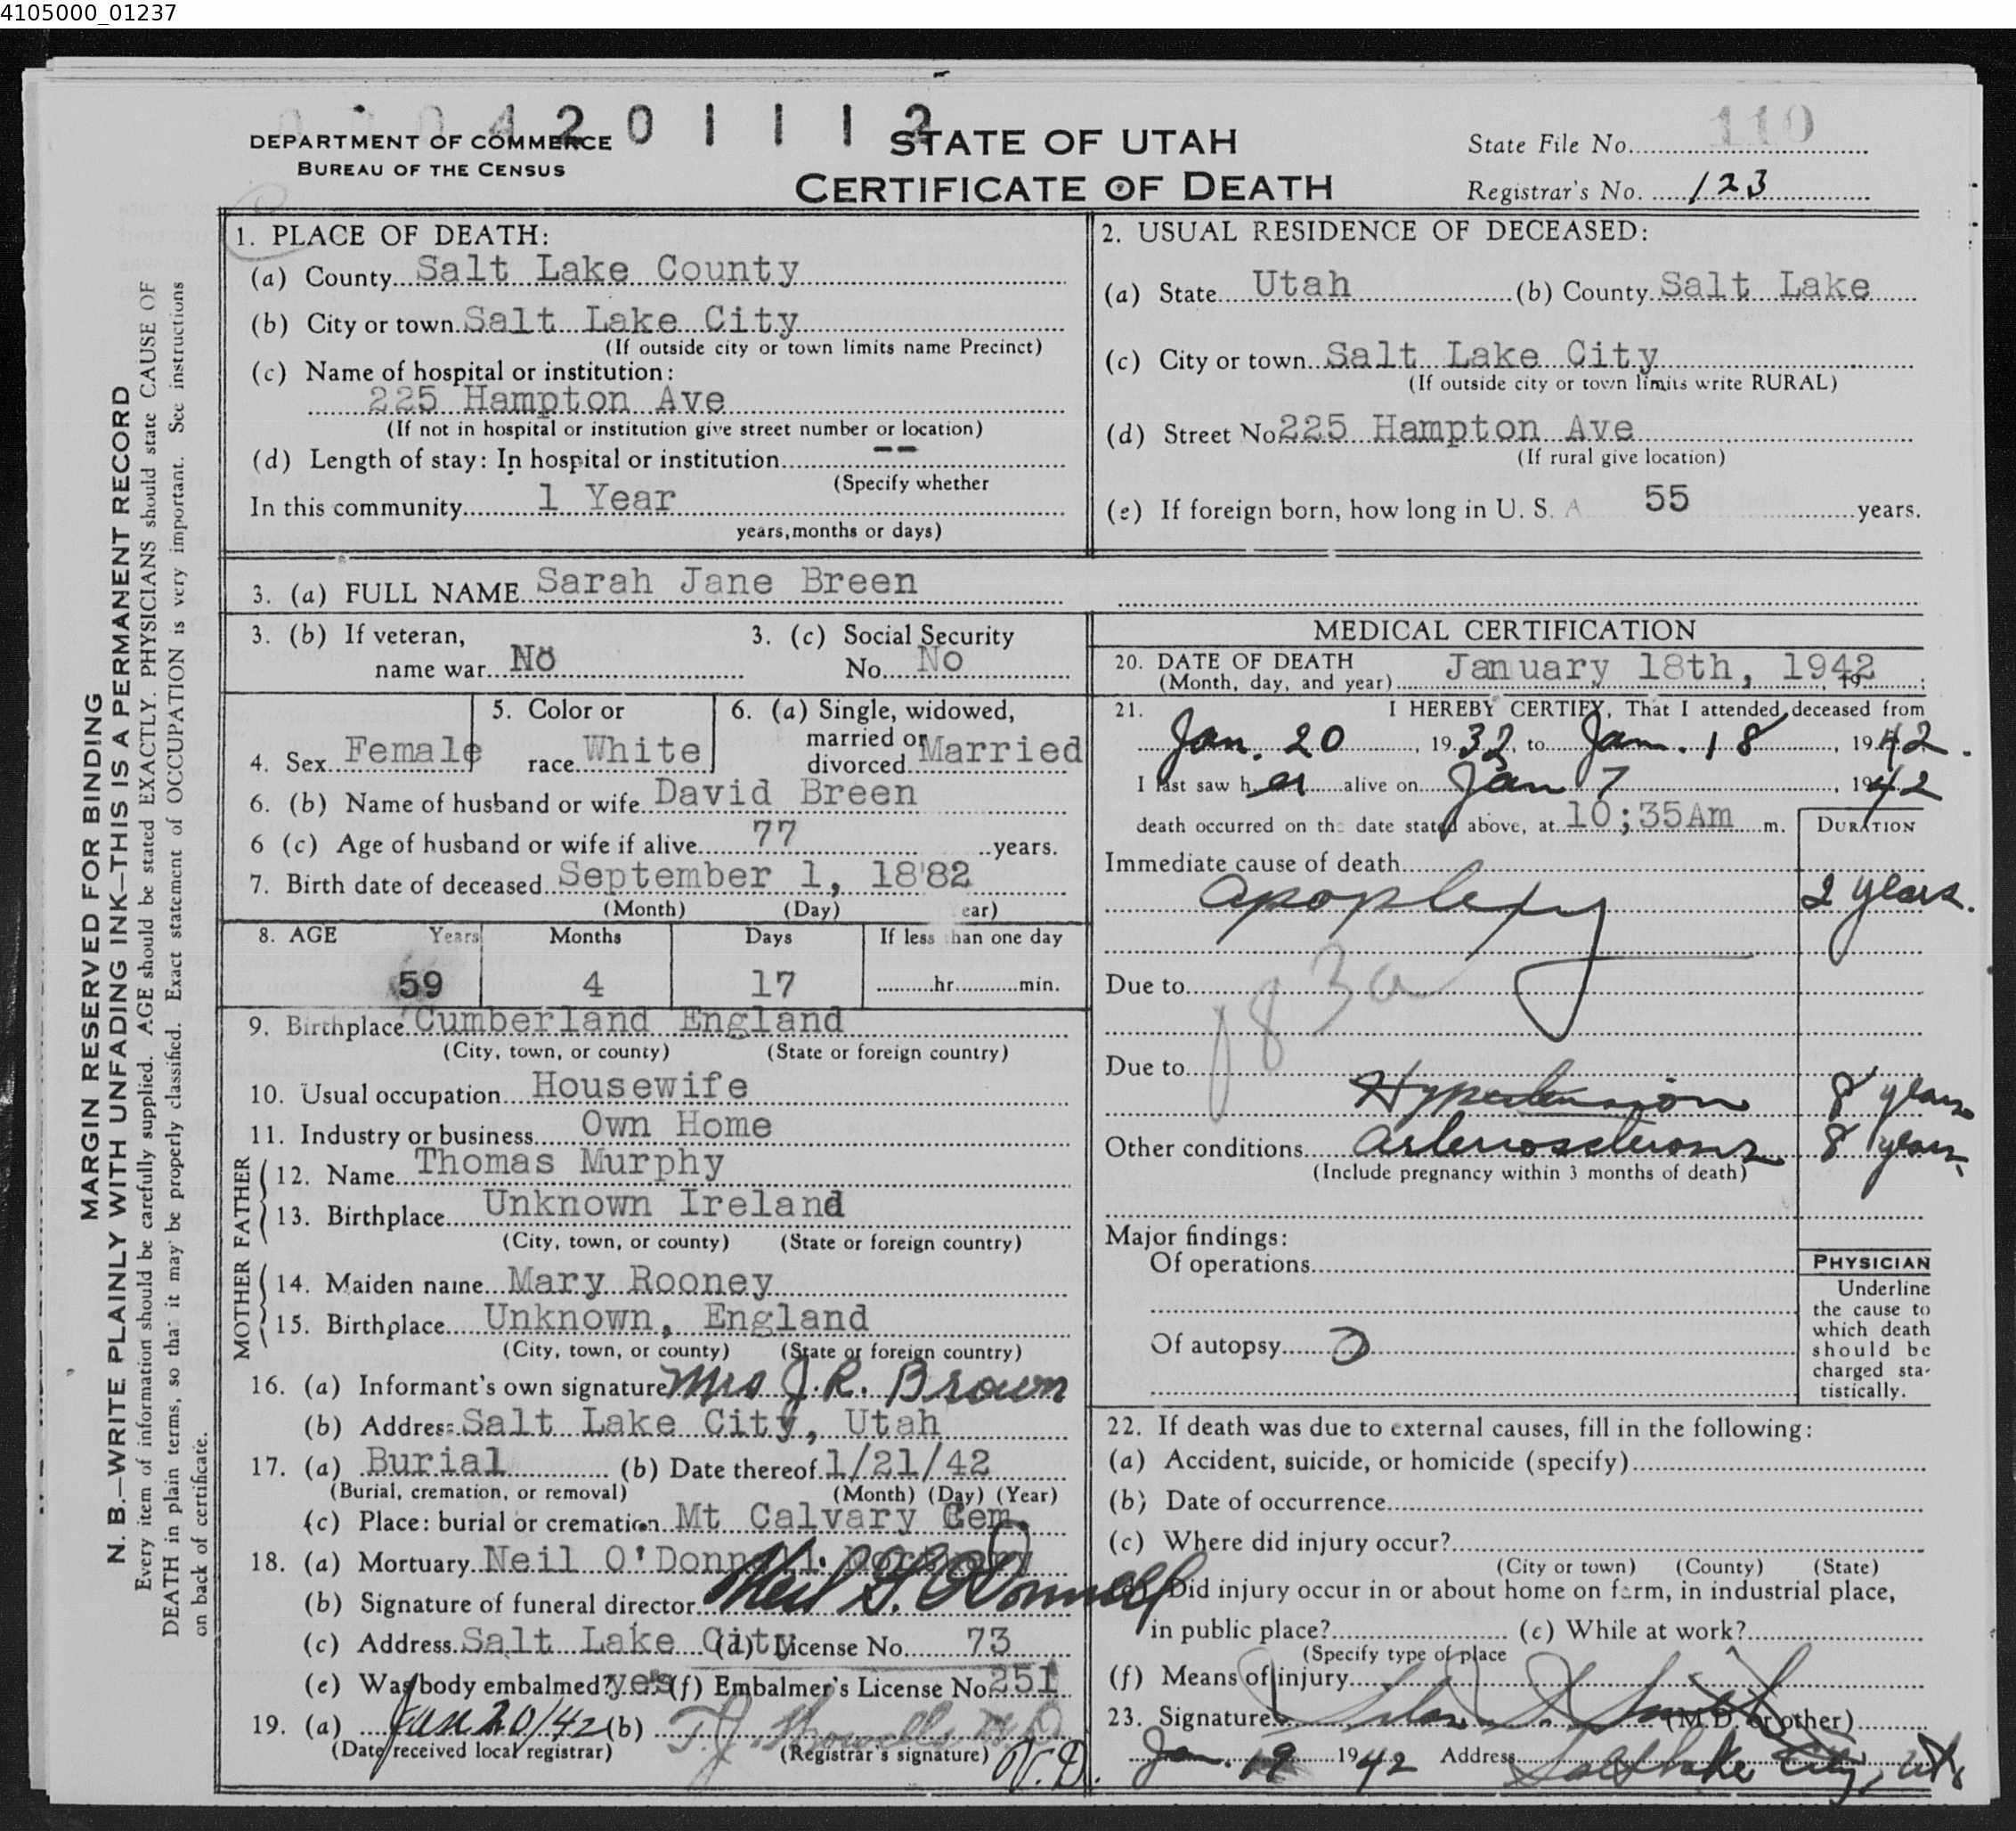 4105000_01237
4201112
110
DEPARTMENT OF COMMERCE
BUREAU OF THE CENSUS
STATE OF UTAH
CERTIFICATE OF DEATH
State File No.
Registrar's No. 123
MARGIN RESERVED FOR BINDING
N. B.—WRITE PLAINLY WITH UNFADING INK—THIS IS A PERMANENT RECORD
Every item of information should be carefully supplied. AGE should be stated EXACTLY. PHYSICIANS should state CAUSE OF
DEATH in plain terms, so that it may be properly classified. Exact statement of OCCUPATION is very important. See instructions
on back of certificate.
1. PLACE OF DEATH:
(a) County Salt Lake County
(b) City or town Salt Lake City
(If outside city or town limits name Precinct)
(c) Name of hospital or institution:
225 Hampton Ave
(If not in hospital or institution give street number or location)
(d) Length of stay: In hospital or institution --
(Specify whether
In this community 1 Year
years, months or days)
2. USUAL RESIDENCE OF DECEASED:
(a) State Utah (b) County Salt Lake
(c) City or town Salt Lake City
(If outside city or town limits write RURAL)
(d) Street No 225 Hampton Ave
(If rural give location)
(e) If foreign born, how long in U. S. A 55 years.
3. (a) FULL NAME Sarah Jane Breen
3. (b) If veteran, 3. (c) Social Security
name war No No. No
4. Sex Female
5. Color or
race White
6. (a) Single, widowed,
married or
divorced Married
6. (b) Name of husband or wife David Breen
6 (c) Age of husband or wife if alive 77 years.
7. Birth date of deceased September 1, 1882
(Month) (Day) (Year)
8. AGE Years Months Days If less than one day
59 4 17 hr. min.
9. Birthplace Cumberland England
(City, town, or county) (State or foreign country)
10. Usual occupation Housewife
11. Industry or business Own Home
FATHER
12. Name Thomas Murphy
13. Birthplace Unknown Ireland
(City, town, or county) (State or foreign country)
MOTHER
14. Maiden name Mary Rooney
15. Birthplace Unknown, England
(City, town, or county) (State or foreign country)
16. (a) Informant's own signature Mrs J. R. Brown
(b) Address Salt Lake City, Utah
17. (a) Burial (b) Date thereof 1/21/42
(Burial, cremation, or removal) (Month) (Day) (Year)
(c) Place: burial or cremation Mt Calvary Cem.
18. (a) Mortuary Neil O'Donnell Mortuary
(b) Signature of funeral director Neil O'Donnell
(c) Address Salt Lake City (d) License No. 73
(e) Was body embalmed? yes (f) Embalmer's License No. 251
19. (a) Jan 20/42 (b) T. J. Howells M D
(Date received local registrar) (Registrar's signature)
MEDICAL CERTIFICATION
20. DATE OF DEATH January 18th, 1942
(Month, day, and year) 19 ;
21. I HEREBY CERTIFY, That I attended deceased from
Jan. 20, 1932, to Jan. 18, 1942.
I last saw her alive on Jan 7, 1942
death occurred on the date stated above, at 10;35Am m.
DURATION
Immediate cause of death
apoplexy 2 years.
Due to 83a
Due to
Hypertension 8 years
Other conditions arteriosclerosis 8 years
(Include pregnancy within 3 months of death)
Major findings:
Of operations
Of autopsy 0
PHYSICIAN
Underline
the cause to
which death
should be
charged sta-
tistically.
22. If death was due to external causes, fill in the following:
(a) Accident, suicide, or homicide (specify)
(b) Date of occurrence
(c) Where did injury occur?
(City or town) (County) (State)
Did injury occur in or about home on farm, in industrial place,
in public place? (e) While at work?
(Specify type of place
(f) Means of injury
23. Signature (M. D. or other)
Jan. 19 1942 Address Salt Lake City, Ut